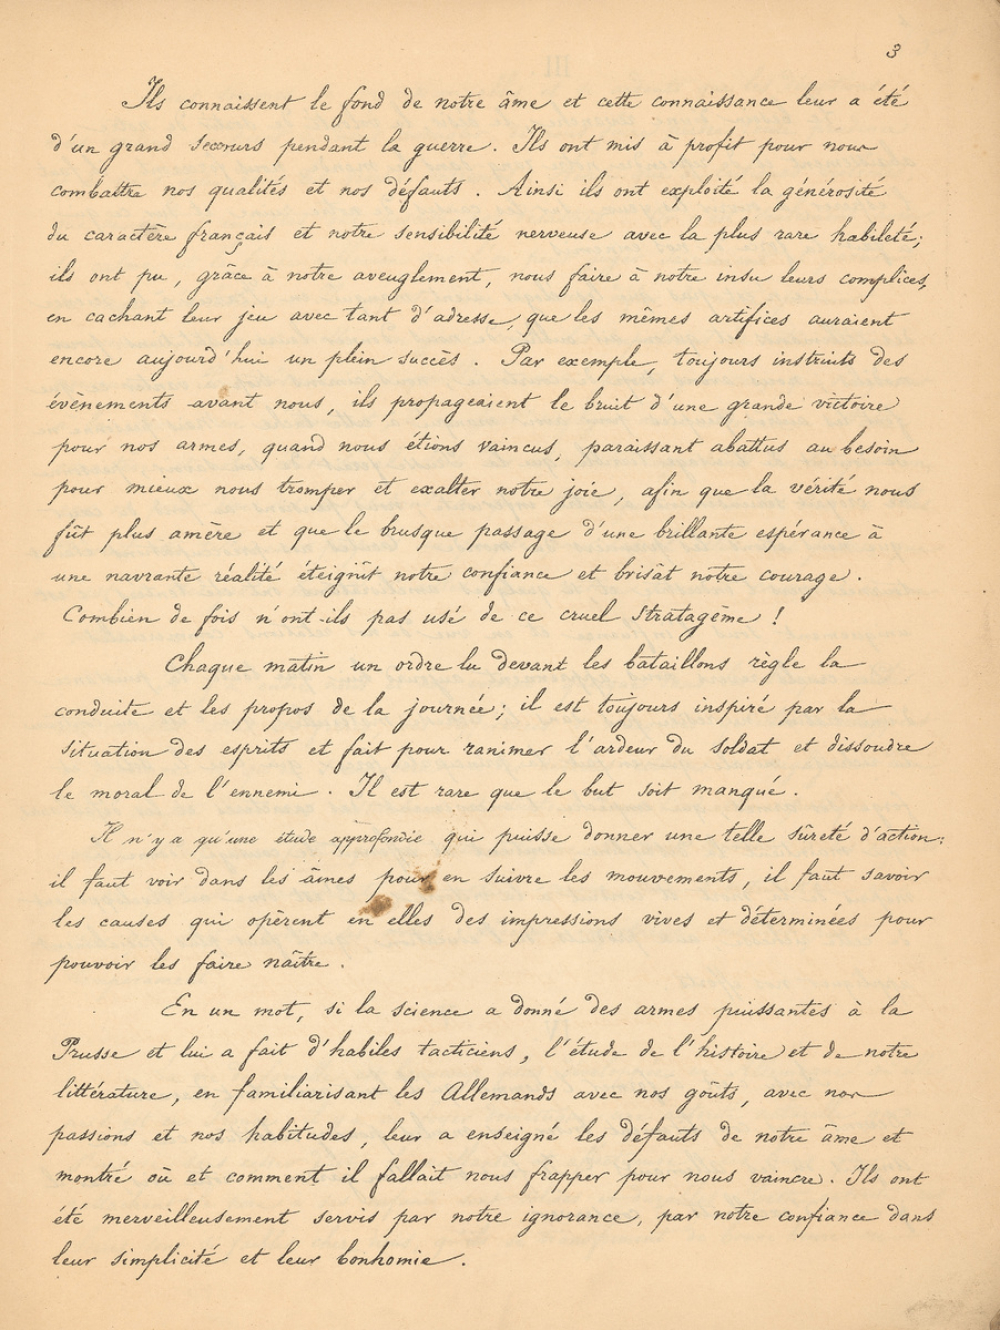 3
Ils connaissent le fond de notre âme et cette connaissance leur a été
d'un grand secours pendant la guerre. Ils ont mis à profit pour nous
combattre nos qualités et nos défauts. Ainsi ils ont exploité la générosité
du caractère français et notre sensibilité nerveuse avec la plus rare habileté;
ils ont pu, grâce à notre aveuglement, nous faire à notre insu leurs complices,
en cachant leur jeu avec tant d'adresse, que les mêmes artifices auraient
encore aujourd'hui un plein succès. Par exemple, toujours instruits des
évènements avant nous, ils propageaient le bruit d'une grande victoire
pour nos armes, quand nous étions vaincus, paraissant abattus au besoin
pour mieux nous tromper et exalter notre joie, afin que la vérité nous
fût plus amère et que le brusque passage d'une brillante espérance à
une navrante réalité éteignît notre confiance et brisât notre courage.
Combien de fois n'ont-ils pas usé de ce cruel stratagème !
Chaque matin un ordre lu devant les bataillons règle la
conduite et les propos de la journée; il est toujours inspiré par la
situation des esprits et fait pour ranimer l'ardeur du soldat et dissoudre
le moral de l'ennemi. Il est rare que le but soit manqué.
Il n'y a qu'une étude approfondie qui puisse donner une telle sûreté d'action:
il faut voir dans les âmes pour en suivre les mouvements, il faut savoir
les causes qui opèrent en elles des impressions vives et déterminées pour
pouvoir les faire naître.
En un mot, si la science a donné des armes puissantes à la
Prusse et lui a fait d'habiles tacticiens, l'étude de l'histoire et de notre
littérature, en familiarisant les Allemands avec nos goûts, avec nos
passions et nos habitudes, leur a enseigné les défauts de notre âme et
montré où et comment il fallait nous frapper pour nous vaincre. Ils ont
été merveilleusement servis par notre ignorance, par notre confiance dans
leur simplicité et leur bonhomie.